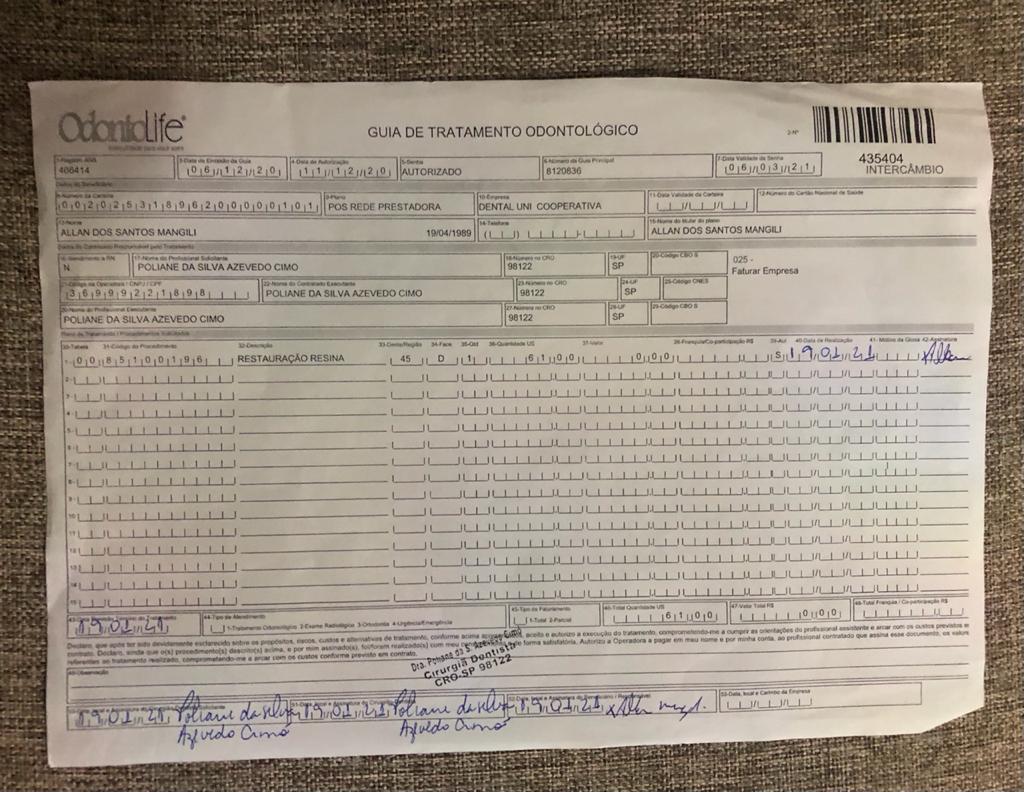 OdontoLife
GUIA DE TRATAMENTO ODONTOLÓGICO
2-Nº
435404
INTERCÂMBIO
1-Registro ANS
406414
3-Data de Emissão da Guia
06/12/20
4-Data de Autorização
11/12/20
5-Senha
AUTORIZADO
6-Número da Guia Principal
8120836
7-Data Validade da Senha
06/03/21
Dados do Beneficiário
8-Número da Carteira
00202531896200000101
9-Plano
POS REDE PRESTADORA
10-Empresa
DENTAL UNI COOPERATIVA
11-Data Validade da Carteira
12-Número do Cartão Nacional de Saúde
13-Nome
ALLAN DOS SANTOS MANGILI 19/04/1989
14-Telefone
15-Nome do titular do plano
ALLAN DOS SANTOS MANGILI
Dados do Contratado Responsável pelo Tratamento
16-Atendimento a RN
N
17-Nome do Profissional Solicitante
POLIANE DA SILVA AZEVEDO CIMO
18-Número no CRO
98122
19-UF
SP
20-Código CBO S
025 -
Faturar Empresa
21-Código na Operadora / CNPJ / CPF
36999221898
22-Nome do Contratado Executante
POLIANE DA SILVA AZEVEDO CIMO
23-Número no CRO
98122
24-UF
SP
25-Código CNES
26-Nome do Profissional Executante
POLIANE DA SILVA AZEVEDO CIMO
27-Número no CRO
98122
28-UF
SP
29-Código CBO S
Plano de Tratamento / Procedimentos Solicitados
30-Tabela 31-Código do Procedimento 32-Descrição 33-Dente/Região 34-Face 35-Qtd 36-Quantidade US 37-Valor 38-Franquia/Co-participação R$ 39-Aut 40-Data de Realização 41-Motivo da Glosa 42-Assinatura
1- 00 85100196 RESTAURAÇÃO RESINA 45 D 1 61,00 0,00 S 19/01/21
2-
3-
4-
5-
6-
7-
8-
9-
10
11
12
13
14
15
19/01/21
44-Tipo de Atendimento
1-Tratamento Odontológico 2-Exame Radiológico 3-Ortodontia 4-Urgência/Emergência
45-Tipo de Faturamento
1-Total 2-Parcial
46-Total Quantidade US
61,00
47-Valor Total R$
0,00
48-Total Franquia / Co-participação R$
Declaro, que após ter sido devidamente esclarecido sobre os propósitos, riscos, custos e alternativas de tratamento, conforme acima aceito e autorizo a execução do tratamento, comprometendo-me a cumprir as orientações do profissional assistente e arcar com os custos previstos e
contrato. Declaro, ainda que o(s) procedimento(s) descrito(s) acima, e por mim assinado(s), foi/foram realizado(s) com meu forma satisfatória. Autorizo a Operadora a pagar em meu nome e por minha conta, ao profissional contratado que assina esse documento, os valores
referentes ao tratamento realizado, comprometendo-me a arcar com os custos conforme previsto em contrato.
49-Observação
Cirurgiã Dentista
CRO-SP 98122
19/01/21 Poliane da Silva
Azevedo Cimó
19/01/21 Poliane da Silva
Azevedo Cimó
19/01/21
53-Data, local e Carimbo da Empresa